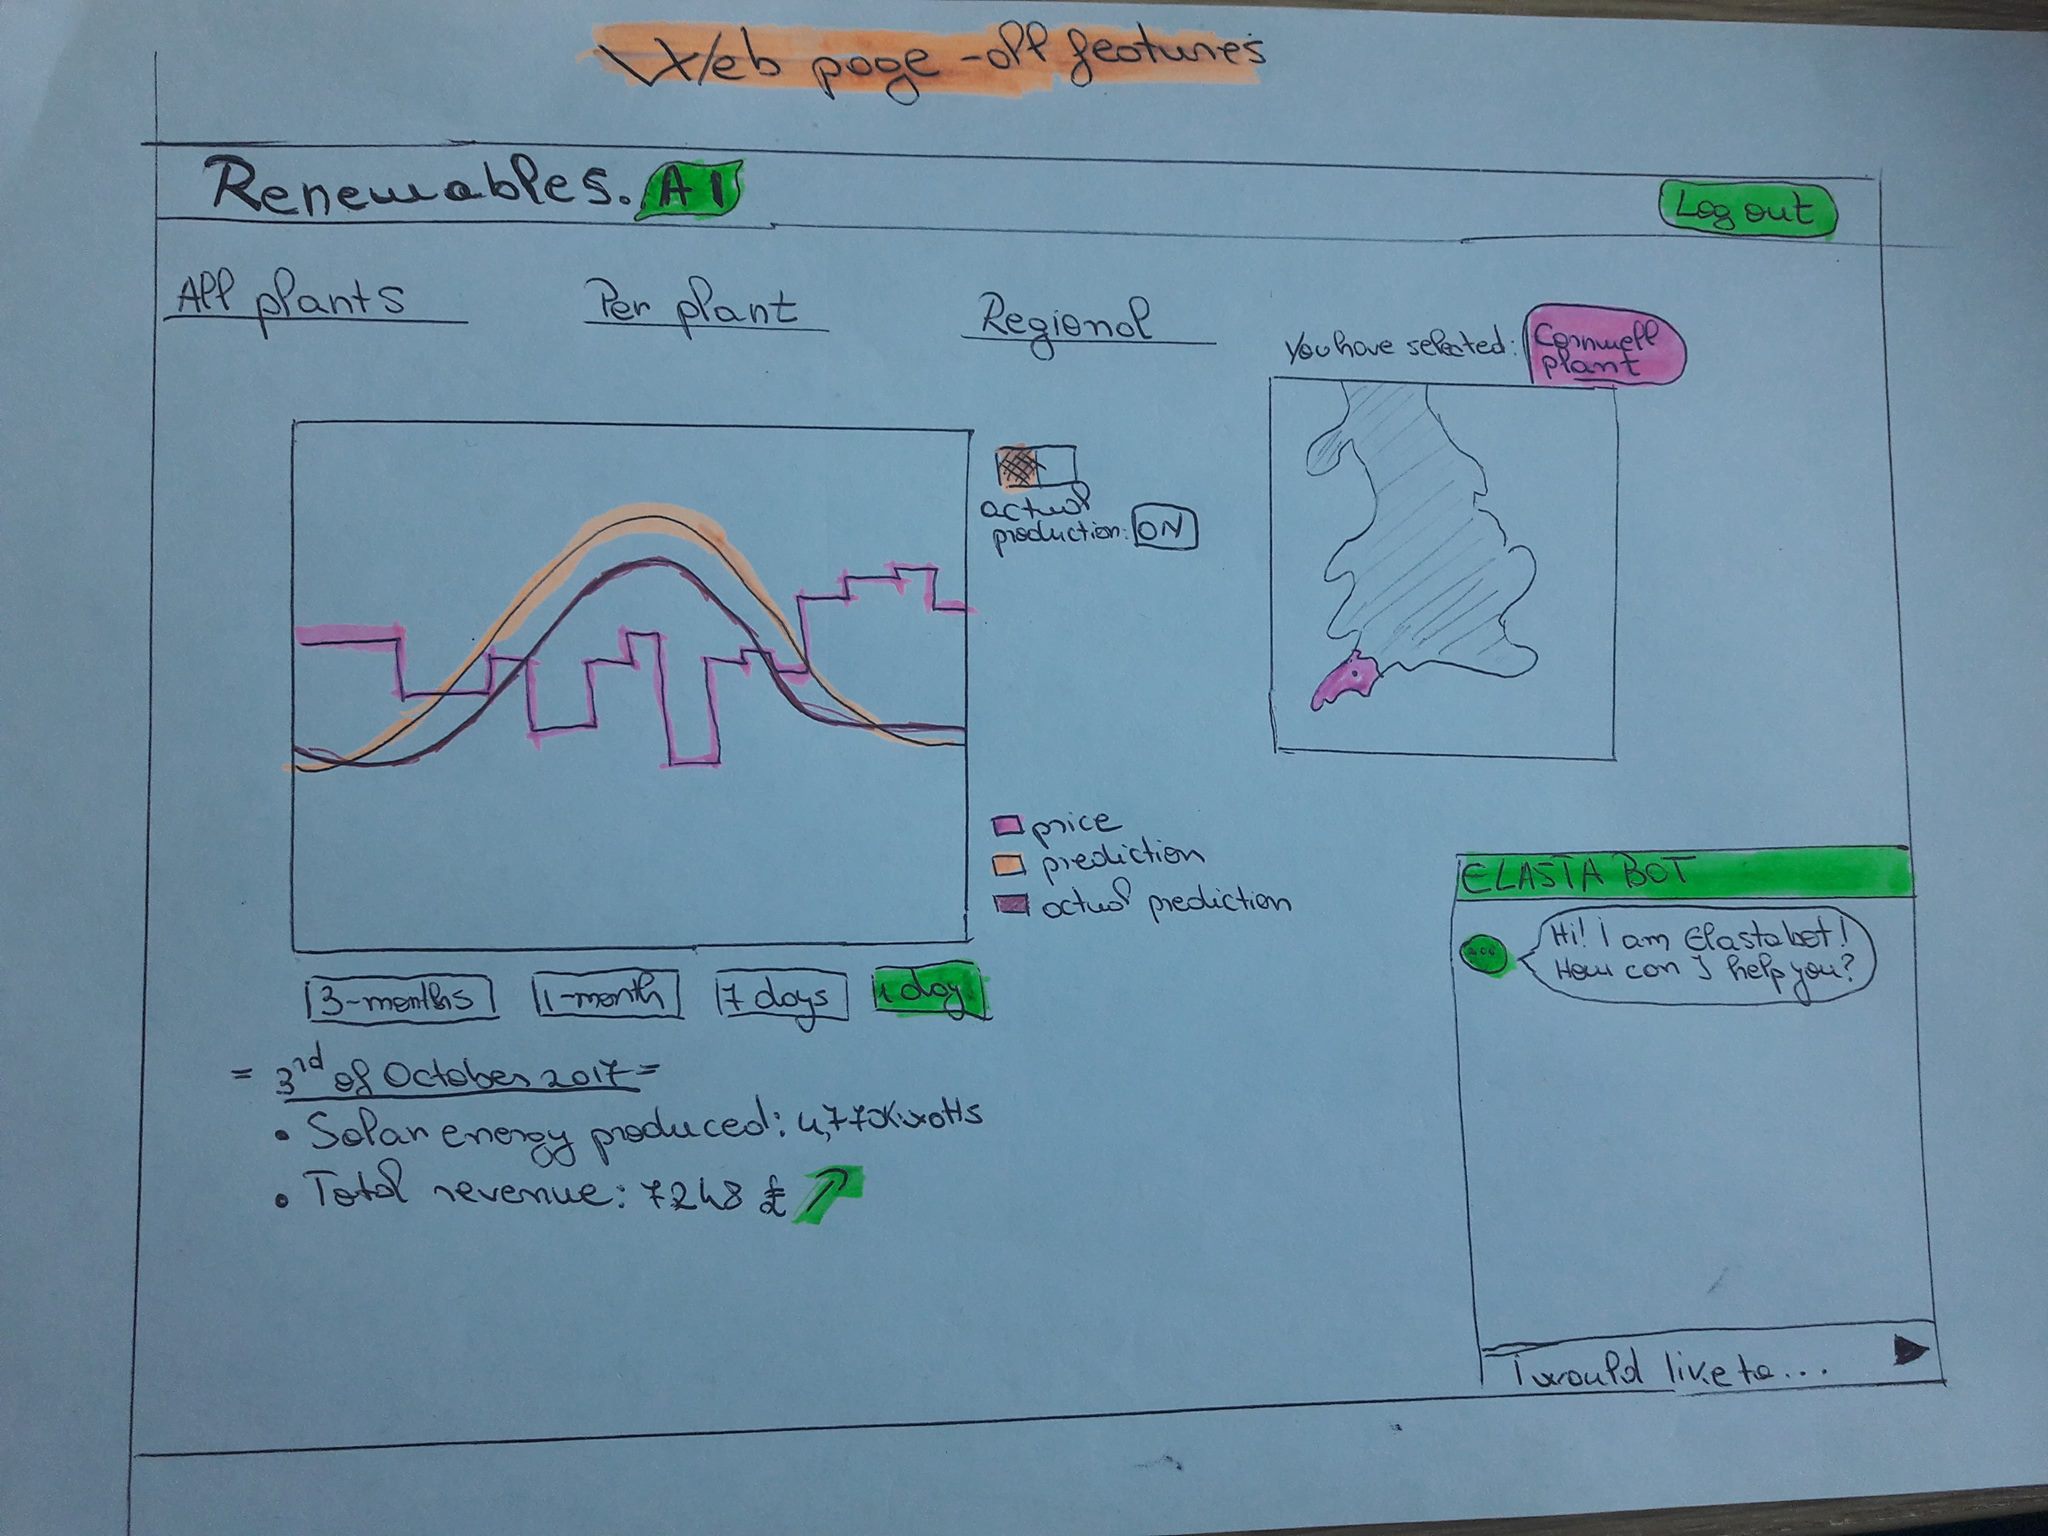 Web page - all features
Renewables.AI
Log out
All plants
Per plant
Regional
You have selected:
Cornwell
plant
actual
production: ON
price
prediction
actual prediction
3-months
1-month
7 days
1 day
= 3rd of October 2017 =
• Solar energy produced:
• Total revenue: 7248 £
ELASTA BOT
Hi! I am Elastabot!
How can I help you?
I would like to...